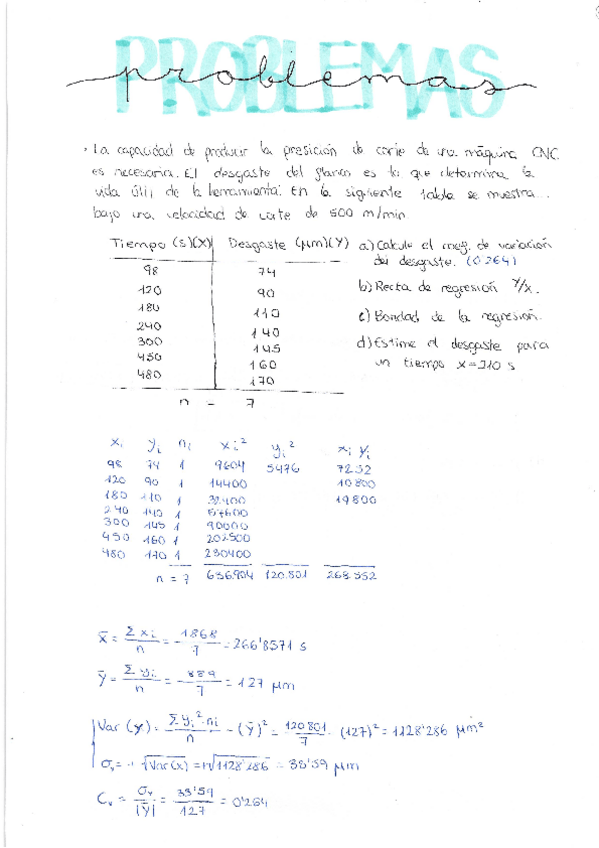 PROBLEMAS
problemas
· La capacidad de producir la presición de corte de una máquina CNC
es necesaria. El desgaste del flanco es lo que determina la
vida útil de la herramienta. En la siguiente tabla se muestra...
bajo una velocidad de corte de 500 m/min
Tiempo (s)(X) Desgaste (μm)(Y)
98 74
120 90
180 110
240 140
300 145
450 160
480 170
n = 7
a) Calcule el coef. de variación
del desgaste. (0'264)
b) Recta de regresión Y/X.
c) Bondad de la regresión.
d) Estime el desgaste para
un tiempo x=210 s
xi yi ni xi² yi² xi yi
98 74 1 9604 5476 7252
120 90 1 14400 10800
180 110 1 32400 19800
240 140 1 57600
300 145 1 90000
450 160 1 202500
480 170 1 230400
n = 7 636.904 120.801 268.352
x̄ = Σ xi / n = 1868 / 7 = 266'8571 s
ȳ = Σ yi / n = 889 / 7 = 127 μm
Var (y) = Σ yi²·ni / n - (ȳ)² = 120801 / 7 - (127)² = 1128'286 μm²
σy = + √Var(x) = +√1128'286 = 33'59 μm
Cv = σy / |ȳ| = 33'59 / 127 = 0'264